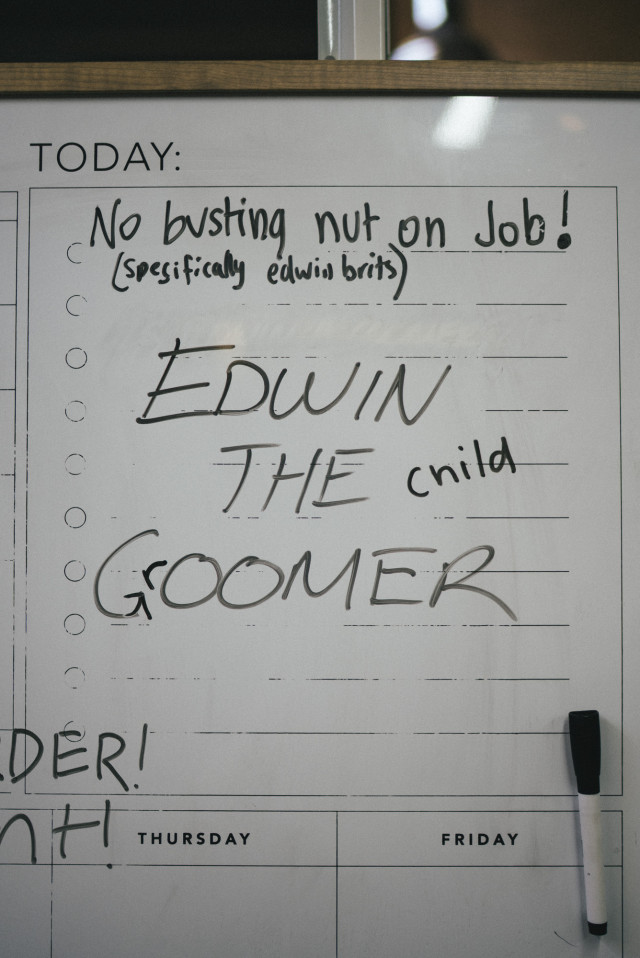 TODAY:
No busting nut on Job!
(spesifically edwin brits)
EDWIN
THE child
GrOOMER
DER!
nt!
THURSDAY
FRIDAY